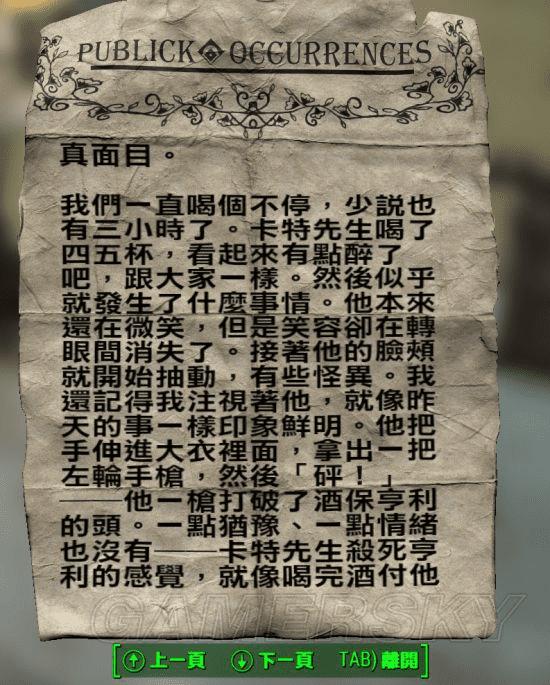 PUBLICK◈OCCURRENCES
真面目。
我們一直喝個不停，少説也
有三小時了。卡特先生喝了
四五杯，看起來有點醉了
吧，跟大家一樣。然後似乎
就發生了什麼事情。他本來
還在微笑，但是笑容卻在轉
眼間消失了。接著他的臉頰
就開始抽動，有些怪異。我
還記得我注視著他，就像昨
天的事一樣印象鮮明。他把
手伸進大衣裡面，拿出一把
左輪手槍，然後「砰！」
——他一槍打破了酒保亨利
的頭。一點猶豫、一點情緒
也沒有——卡特先生殺死亨
利的感覺，就像喝完酒付他
GAMERSKY
↑)上一頁 ↓)下一頁 TAB)離開